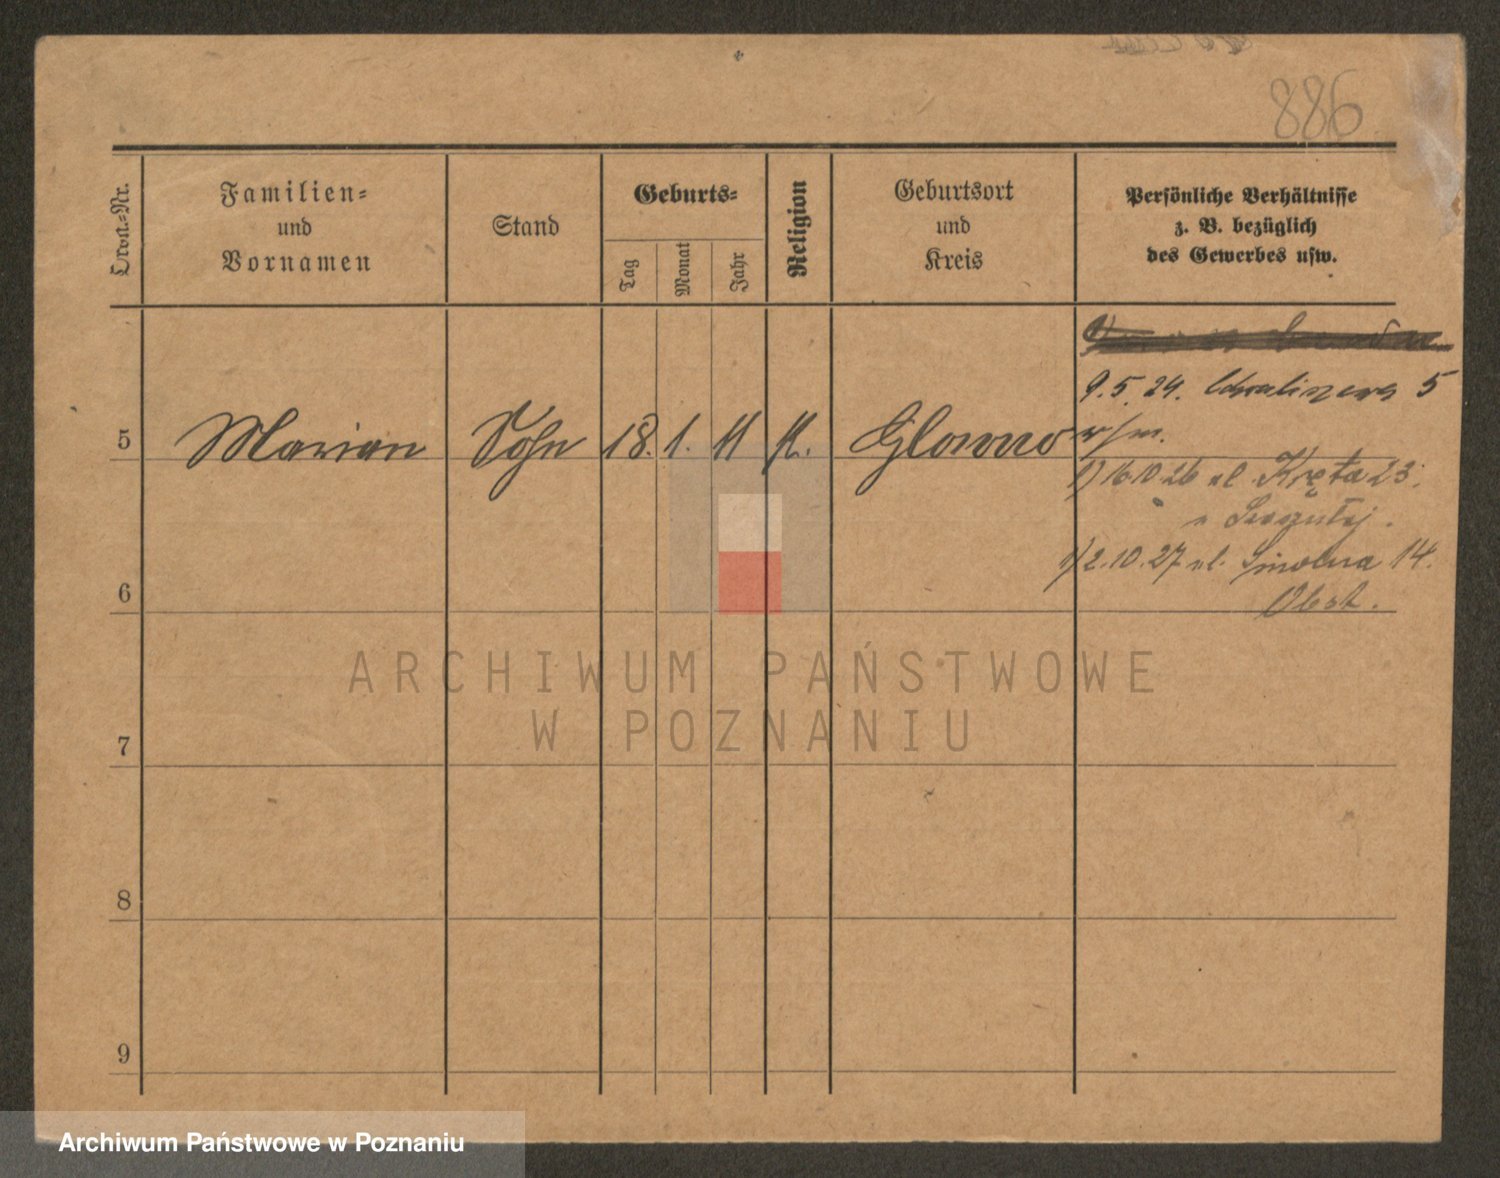 886
Ordn.-Nr.
Familien-
und
Vornamen
Stand
Geburts-
Tag
Monat
Jahr
Religion
Geburtsort
und
Kreis
Persönliche Verhältnisse
z. B. bezüglich
des Gewerbes usw.
9.5.24. 5
5 Marian Sohn 18. 1. 11 k. Glowno w/m.
1) 16.10.26 ul. Kręta 23.
6
1) 2.10.27 ul. Smolna 14.
7
8
9
ARCHIWUM PAŃSTWOWE
W POZNANIU
Archiwum Państwowe w Poznaniu